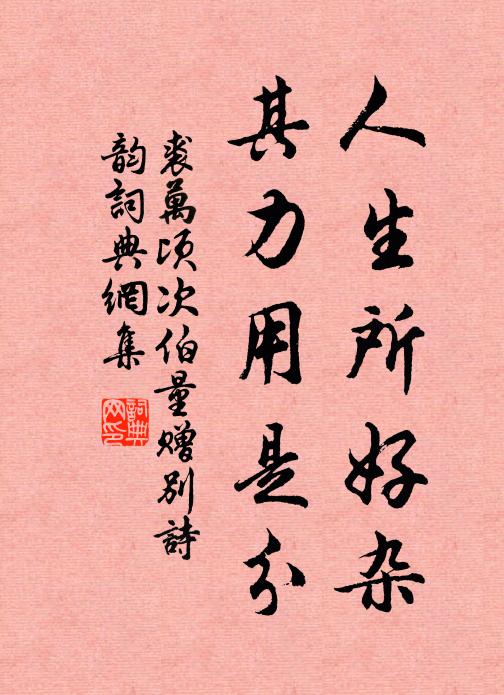 人生所好杂
其力用是分
裘萬頃次伯量赠别詩
韵詞典網集
詞典网印